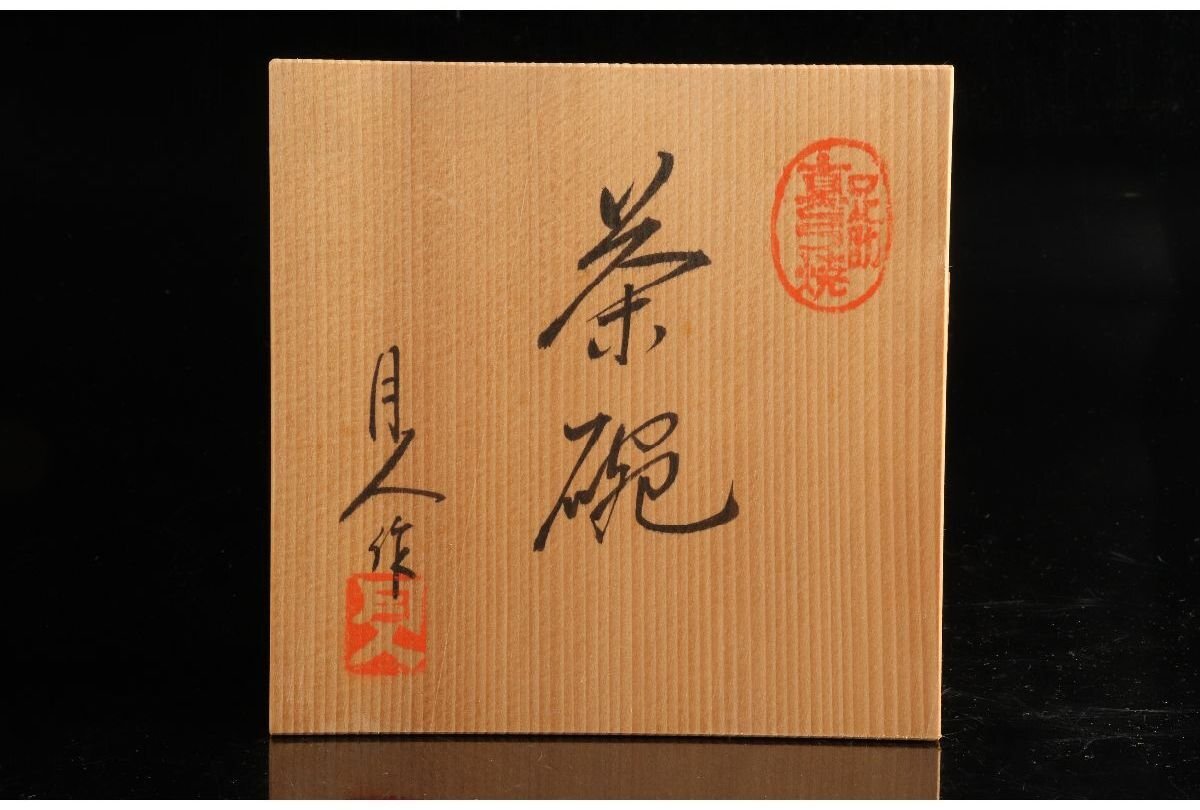 真弓焼
茶碗
月人作
月人